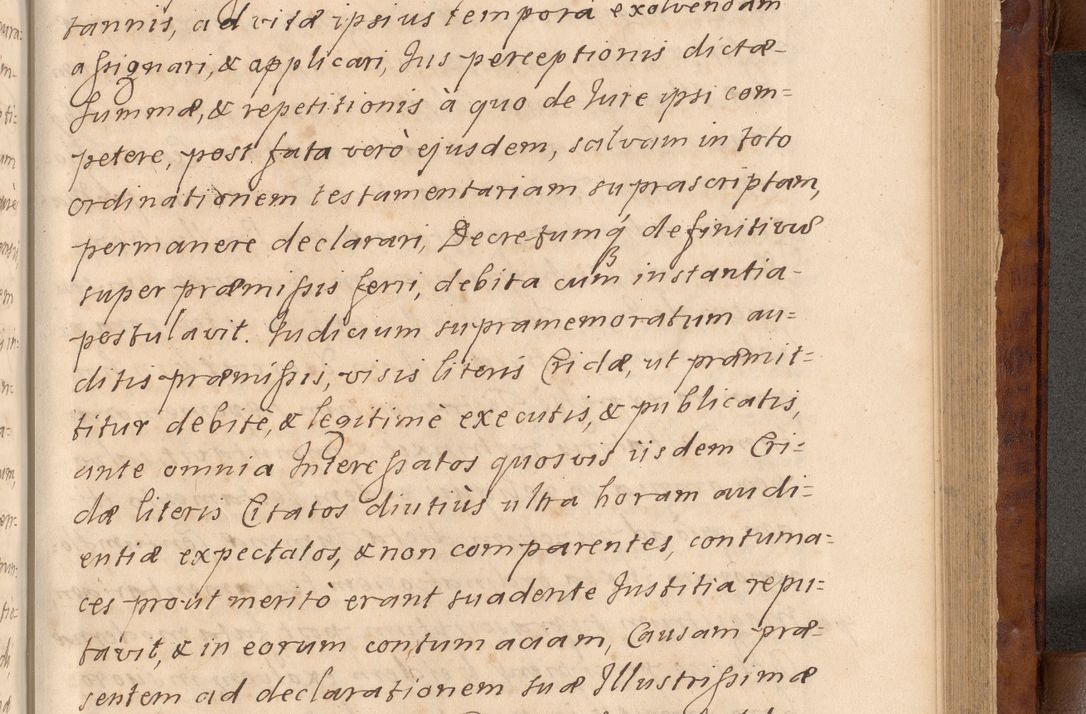 tannis, ad vitæ ipsius tempora exolvendam
assignari, & applicari, Jus perceptionis dictæ
summæ, & repetitionis à quo de Jure ipsi com=
petere, post fata verò ejusdem, salvam in toto
ordinationem testamentariam suprascriptam,
permanere declarari, Decretumq́ definitivũ
super præmissis ferri, debita cum instantia
postulavit. Judicium supramemoratum au=
ditis præmissis, visis literis Cridæ, ut præmit=
titur debitè, & legitimè executis, & publicatis,
ante omnia Interessatos quosvis iisdem Cri=
dæ literis Citatos diutiùs ultra horam audi=
entiæ expectatos, & non comparentes, contuma=
ces prout meritò erant suadente Justitia repu=
tavit, & in eorum contumaciam, Causam præ=
sentem ad declarationem suæ Illustrissimæ